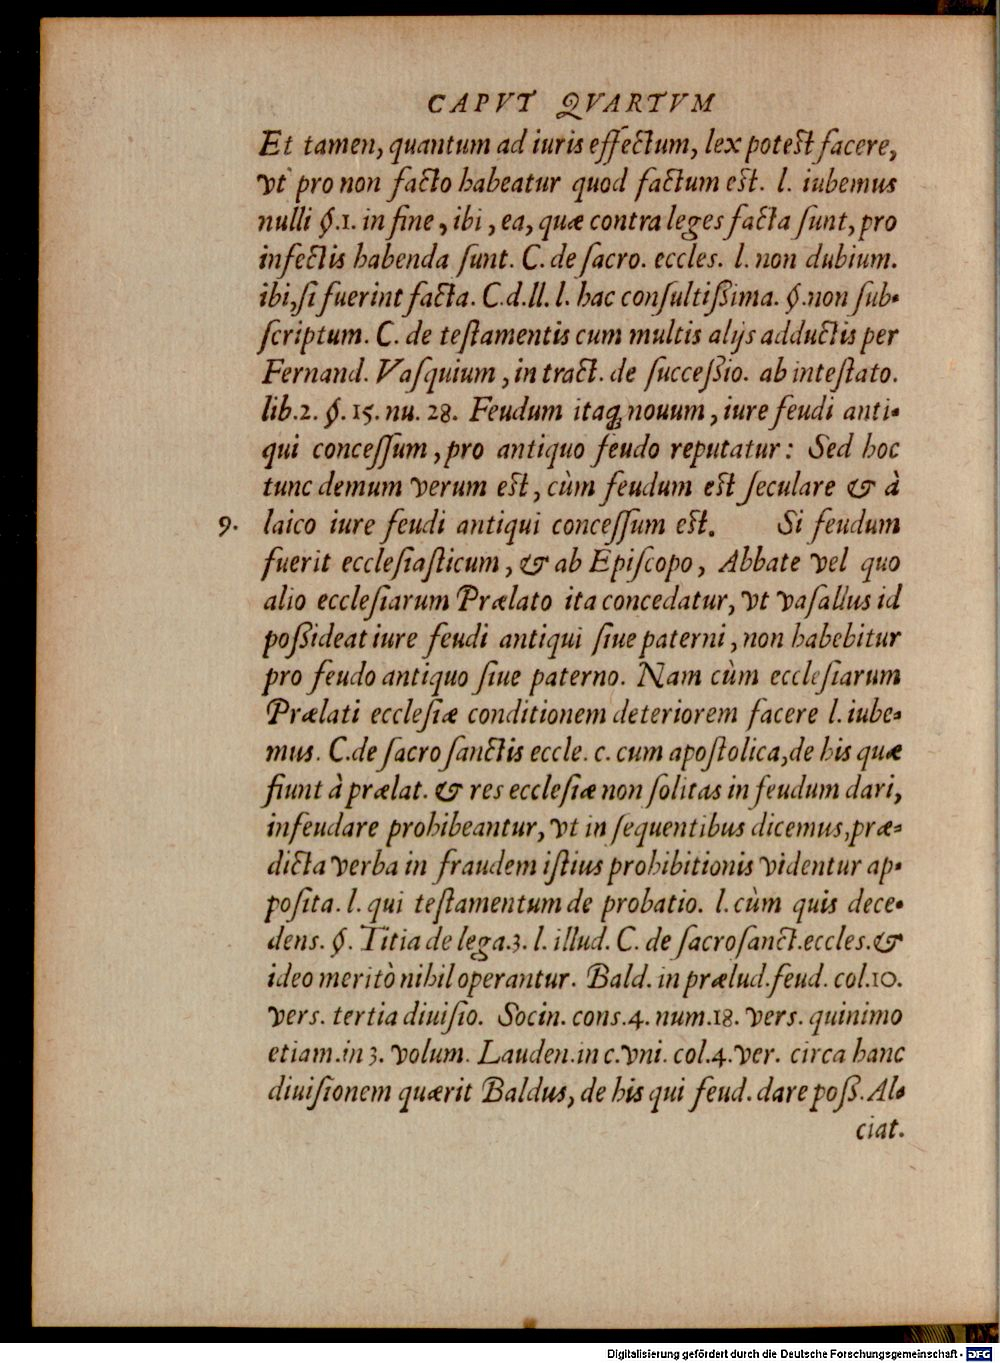 CAPVT QVARTVM
Et tamen, quantum ad iuris effectum, lex potest facere,
vt pro non facto habeatur quod factum est. l. iubemus
nulli §.1. in fine, ibi, ea, quæ contra leges facta sunt, pro
infectis habenda sunt. C. de sacro. eccles. l. non dubium.
ibi, si fuerint facta. C.d.ll. l. hac consultißima. §. non sub-
scriptum. C. de testamentis cum multis alijs adductis per
Fernand. Vasquium, in tract. de succeßio. ab intestato.
lib.2. §. 15. nu. 28. Feudum itaq; nouum, iure feudi anti-
qui concessum, pro antiquo feudo reputatur: Sed hoc
tunc demum verum est, cùm feudum est seculare & à
9. laico iure feudi antiqui concessum est. Si feudum
fuerit ecclesiasticum, & ab Episcopo, Abbate vel quo
alio ecclesiarum Prælato ita concedatur, vt vasallus id
poßideat iure feudi antiqui siue paterni, non habebitur
pro feudo antiquo siue paterno. Nam cùm ecclesiarum
Prælati ecclesiæ conditionem deteriorem facere l. iube-
mus. C. de sacro sanctis eccle. c. cum apostolica, de his quæ
fiunt à prælat. & res ecclesiæ non solitas in feudum dari,
infeudare prohibeantur, vt in sequentibus dicemus, præ-
dicta verba in fraudem istius prohibitionis videntur ap-
posita. l. qui testamentum de probatio. l. cùm quis dece-
dens. §. Titia de lega.3. l. illud. C. de sacrosanct. eccles. &
ideo meritò nihil operantur. Bald. in prælud. feud. col.10.
vers. tertia diuisio. Socin. cons.4. num.18. vers. quinimo
etiam. in 3. volum. Lauden. in c. vni. col.4. ver. circa hanc
diuisionem quærit Baldus, de his qui feud. dare poß. Al-
ciat.
Digitalisierung gefördert durch die Deutsche Forschungsgemeinschaft - DFG